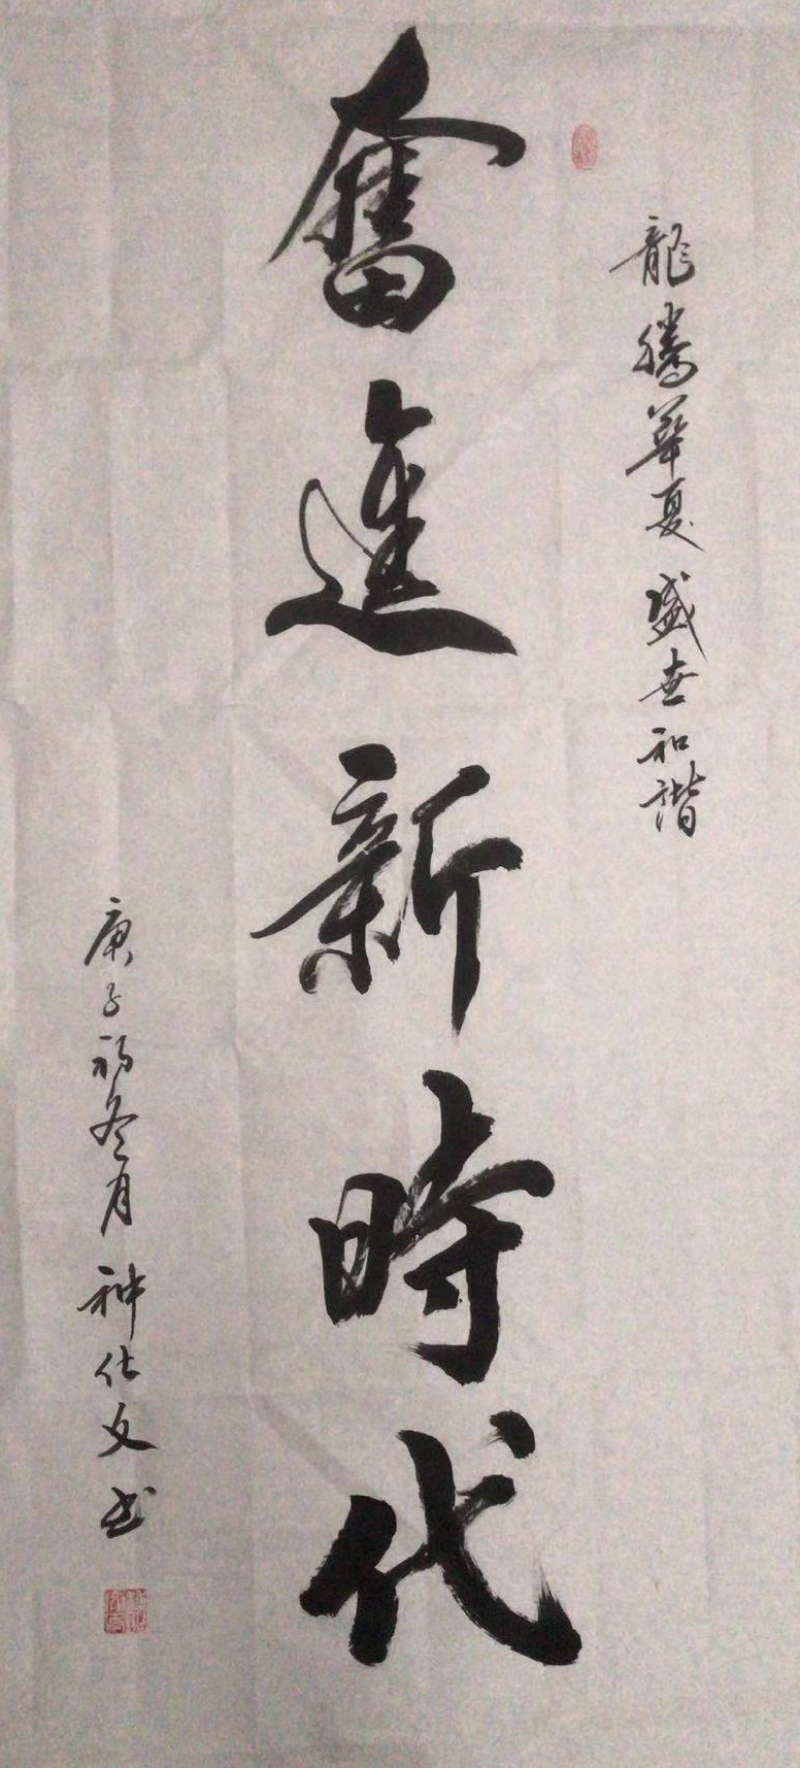 龍騰華夏盛世和諧
奮進新時代
庚子初冬月神仕文书